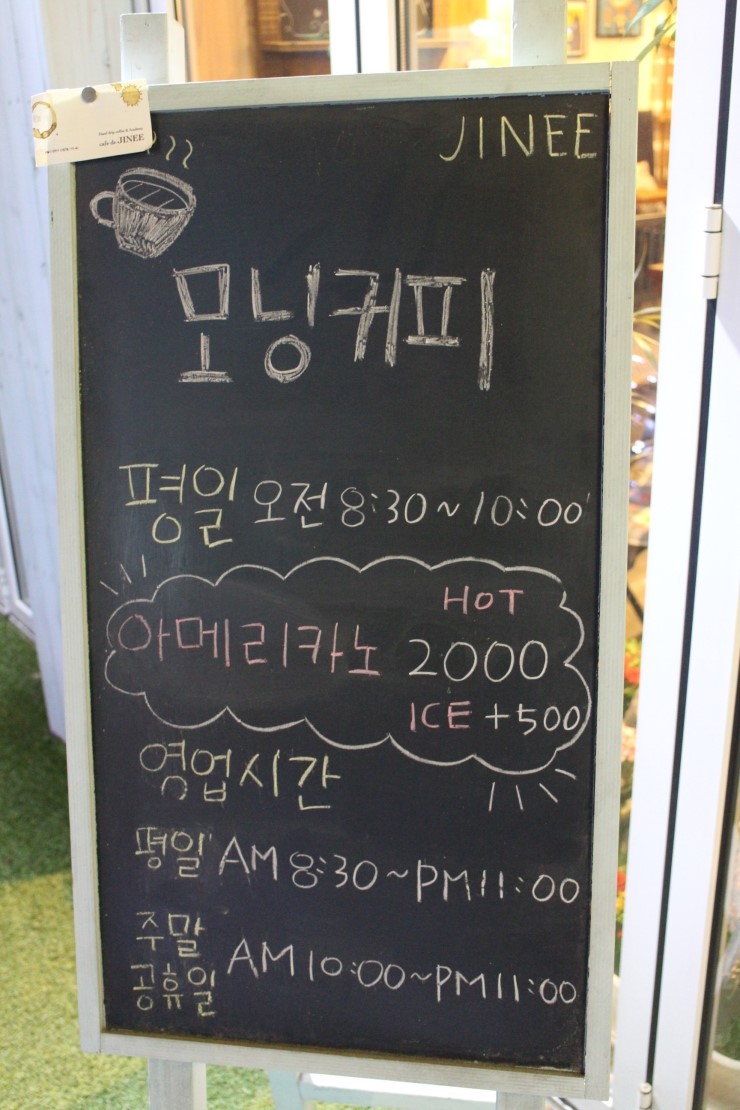 cafe de JINEE
JINEE
모닝커피
평일 오전 8:30~10:00
HOT
아메리카노 2000
ICE +500
영업시간
평일 AM 8:30~PM 11:00
주말
공휴일 AM 10:00~PM 11:00